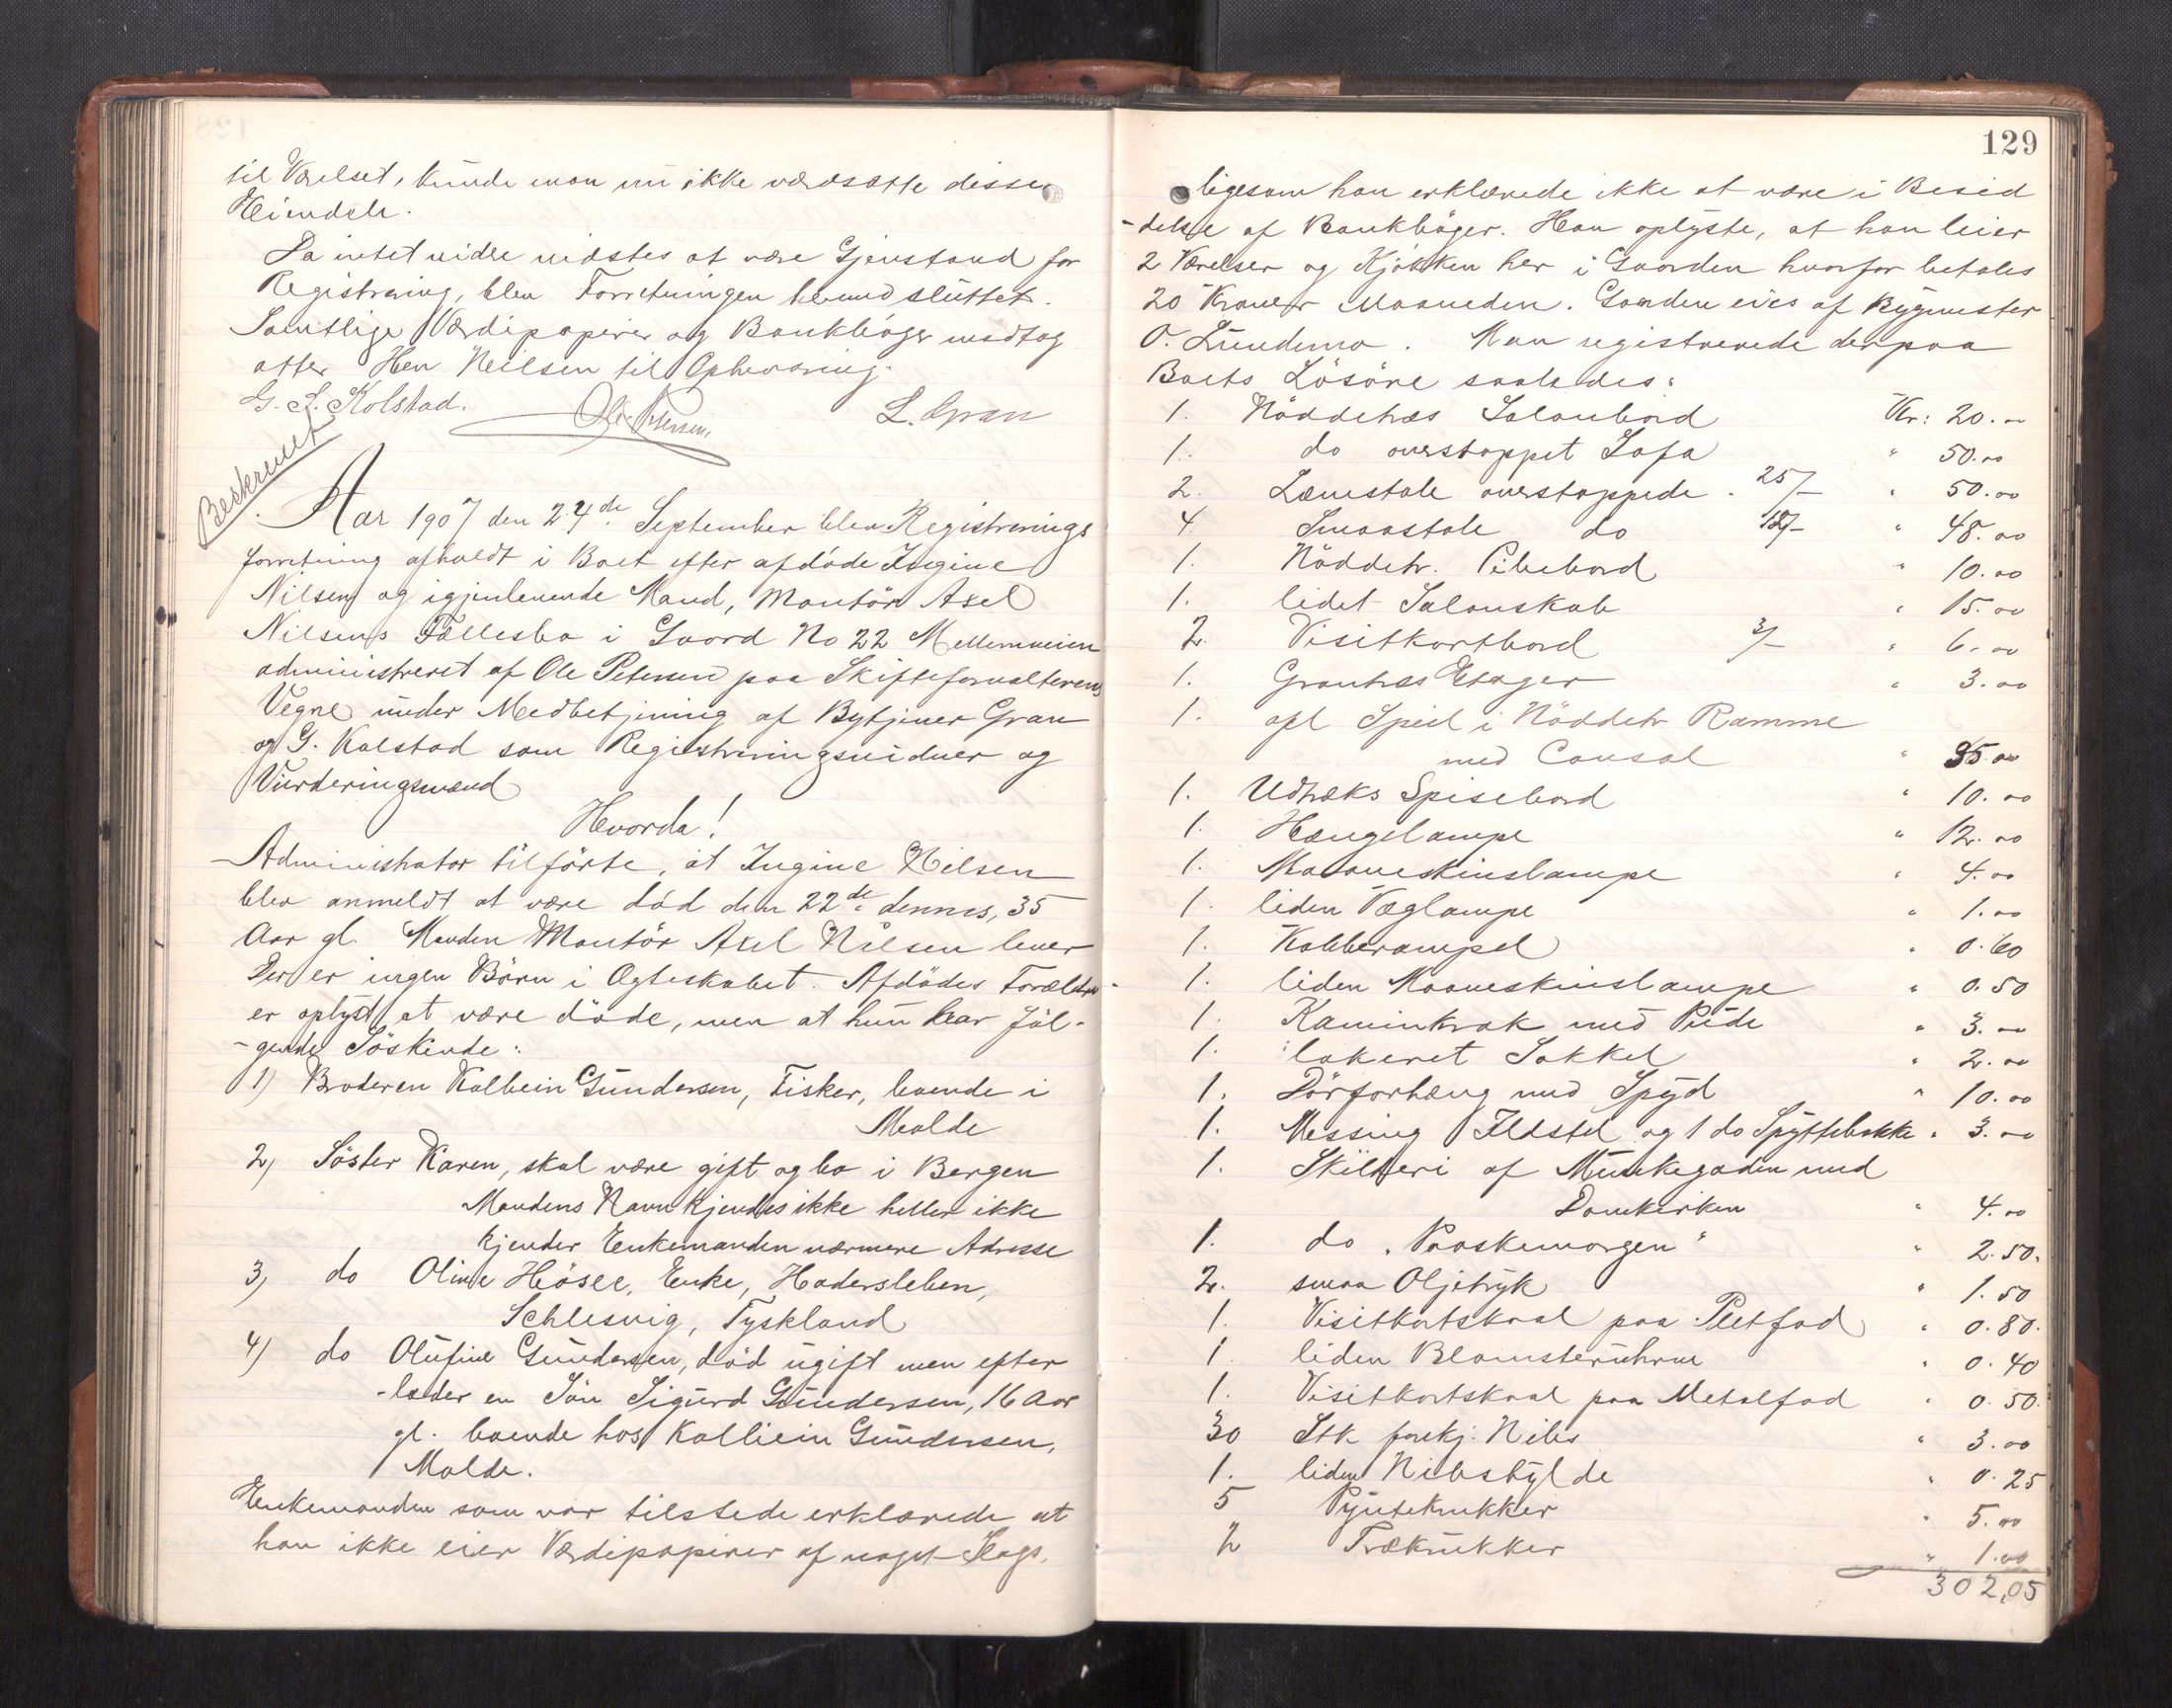 til Værelset, kunde man nu ikke værdsætte disse
Eiendele.
Da intet videre vidstes at være Gjenstand for
Registrering, blev Forretningen hermed sluttet.
Samtlige Værdipapirer og Bankbøger modtog
atter Herr Neilsen til Opbevaring.
G. L. Kolstad. Ole Petersen. L. Gran
Beskrevet
Aar 1907 den 24de September blev Registrerings
forretning afholdt i Boet efter afdøde Ingine
Nilsen og igjenlevende Mand, Montør Axel
Nilsens Fællesbo i Gaard No 22 Mellemveien
administreret af Ole Petersen paa Skifteforvalterens
Vegne under Medbetjening af Bytjener Gran
og G. Kolstad som Registreringsvidner og
Vurderingsmænd
Hvorda!
Administrator tilførte, at Ingine Nilsen
blev anmeldt at være død den 22de dennes, 35
Aar gl. Manden Montør Axel Nilsen lever
Der er ingen Børn i Ægteskabet. Afdødes Forældre
er oplyst at være døde, men at hun har føl-
-gende Søskende:
1) Broderen Kolbein Gundersen, Fisker, boende i
Molde
2) Søster Karen, skal være gift og bo i Bergen
Mandens Navn kjendes ikke heller ikke
kjender Enkemanden nærmere Adresse
3) do Oline Höser, Enke, Hadersleben,
Schlesvig, Tyskland
4) do Olufine Gundersen, død ugift men efter
-lader en Søn Sigurd Gundersen, 16 Aar
gl. boende hos Kolbein Gundersen,
Molde.
Enkemanden som var tilstede erklærede at
han ikke eier Værdipapirer af noget Slags,
129
ligesom han erklærede ikke at være i Besid
-delse af Bankbøger. Han oplyste, at han leier
2 Værelser og Kjøkken her i Gaarden hvorfor betales
20 Kroner Maaneden. Gaarden eies af Bygmester
O. Lundemo. Man registrerede derpaa
Boets Løsøre saaledes:
1. Nøddetræs Salonbord Kr: 20.00
1. do overstoppet Sofa " 50.00
2. Lænestole overstoppede. 25/- " 50.00
4 Smaastole do 12/- " 48.00
1. Nøddetr. Pibebord " 10.00
1. lidet Salonskab " 15.00
2. Visitkortbord 3/- " 6.00
1. Grantræs Etager " 3.00
1. opl Speil i Nøddetr Ramme
med Consol " 35.00
1. Udtræks Spisebord " 10.00
1. Hængelampe " 12.00
1. Maaneskinslampe " 4.00
1. liden Væglampe " 1.00
1. Kobberampel " 0.60
1. liden Maaneskinslampe " 0.50
1. Kaminkrak med Pude " 3.00
1. lakeret Sokkel " 2.00
1. Dørforhæng med Spyd " 10.00
1. Messing Ildstel og 1 do Spyttebakke " 3.00
1. Skilderi af Munkegaden med
Domkirken " 4.00
1. do "Paaskemorgen" " 2.50.
2. smaa Oljetryk " 1.50
1. Visitkortskaal paa Pletfod " 0.80.
1. liden Blomsterurne " 0.40
1. Visitkortskaal paa Metalfod " 0.50.
30 Stk forskj. Nibs " 3.00
1. liden Nibshylde " 0.25
5 Pyntekrukker " 5.00
2 Trækrukker " 1.00
302,05